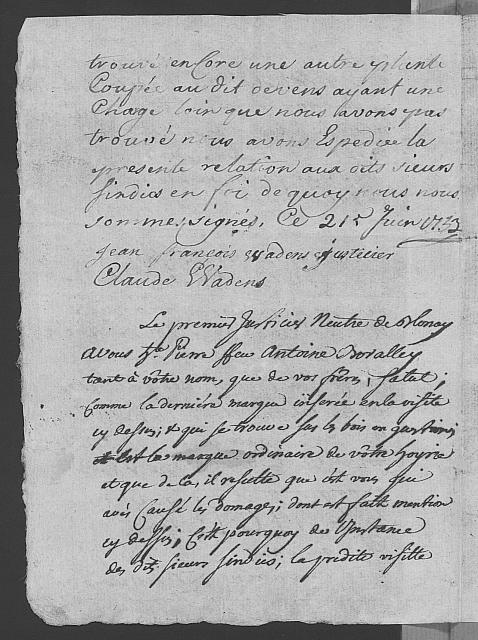 trouvé encore une autre plante
Coupée au dit devens ayant une
Chage loin que nous avons pas
trouvé nous avons Espediée la
presente relation aux dits sieurs
sindics en foi de quoy nous nous
sommes signés. Ce 21e Juin 1733
Jean françois Wadens justicier
Claude Wadens
Le premier Justicier Neutre de Blonay
A vous Hble Pierre ffeu Antoine Boralley
tant à vôtre nom, que de vos frères, salut;
Comme la derniére marque inserée en la visite
cy dessus; & qui se trouve sur les bois en
est la marque ordinaire de vôtre hoyrie
et que de la, il resulte que c'est vous qui
avés Causé les domages; dont est fait mention
cy dessus; C'est pourquoy de l'instance
des dits sieurs sindics; la predite visitte